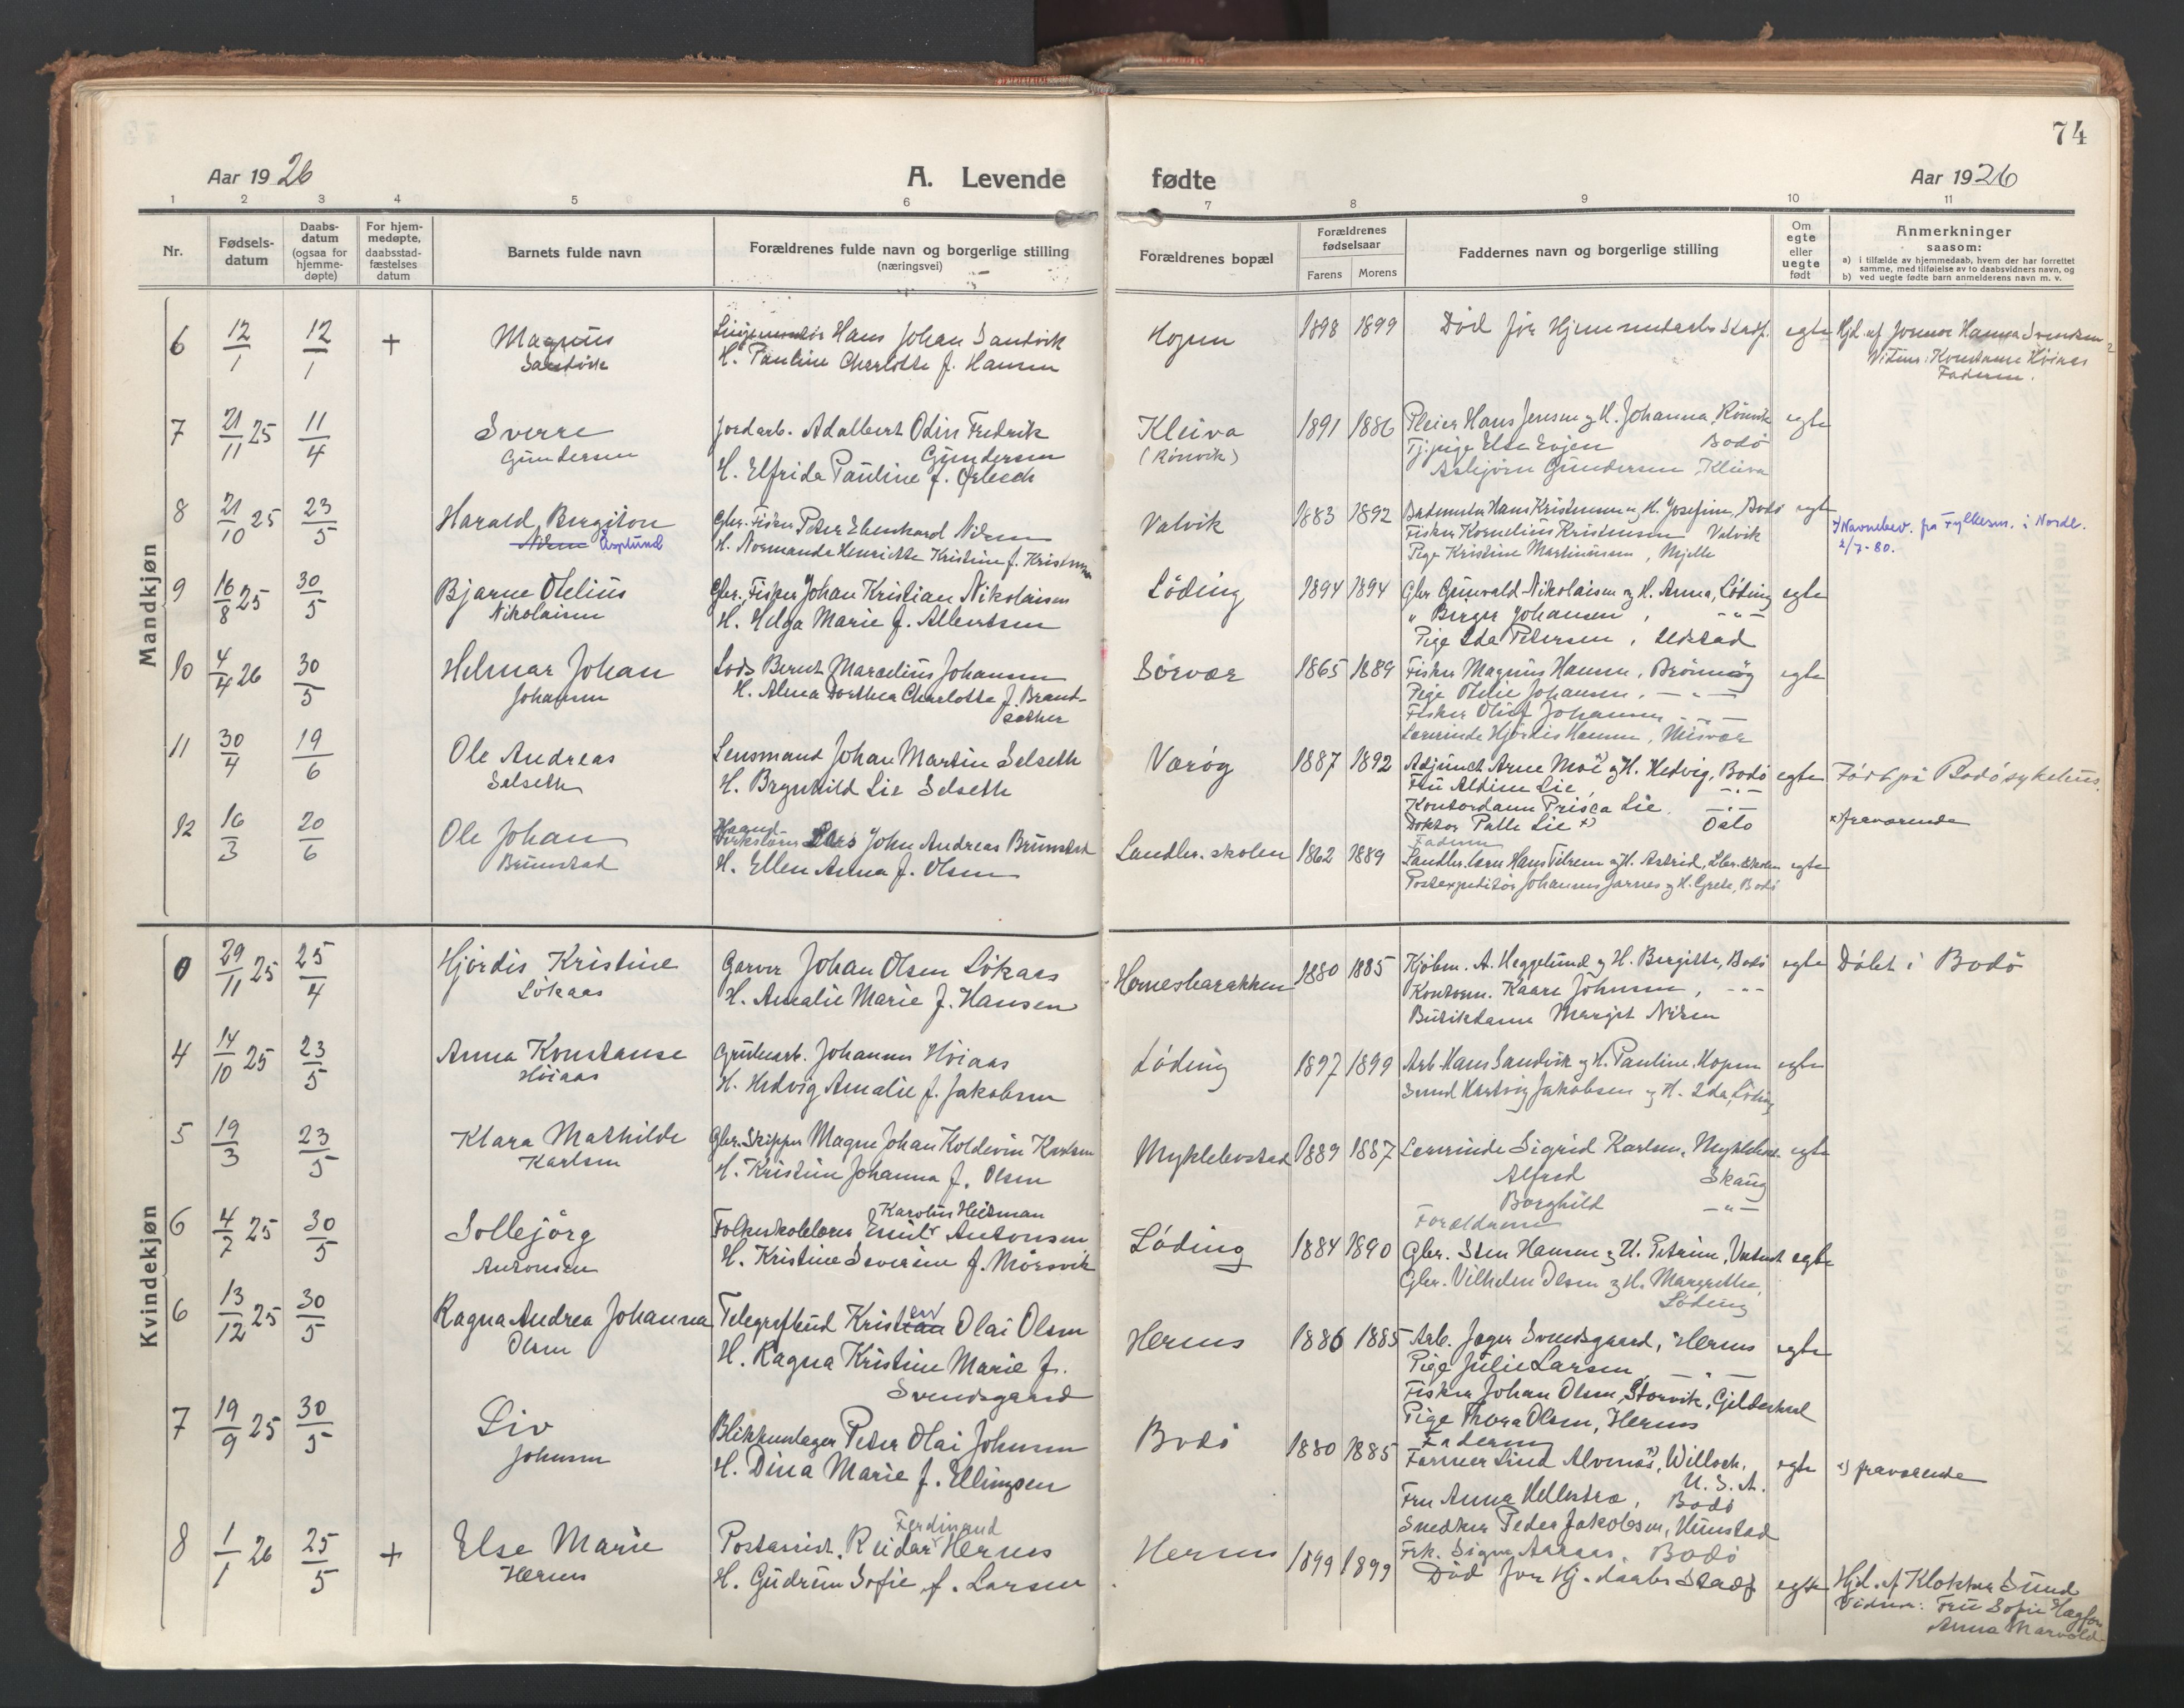 74
Aar 1926
A. Levende
fødte
Aar 1926
1 2 3 4 5 6 7 8 9 10 11
Nr.
Fødsels-
datum
Daabs-
datum
(ogsaa for
hjemme-
døpte)
For hjem-
medøpte,
daabsstad-
fæstelses
datum
Barnets fulde navn
Forældrenes fulde navn og borgerlige stilling
(næringsvei)
Forældrenes bopæl
Forældrenes
fødselsaar
Farens Morens
Faddernes navn og borgerlige stilling
Om
egte
eller
uegte
født
Anmerkninger
saasom:
a) i tilfælde av hjemmedaab, hvem der har forrettet
samme, med tilføielse av to daabsvidners navn, og
b) ved uegte fødte barn anmelderens navn m. v.
Mandkjøn
6 12/1 12/1 +
Magnus
Sandvik
Hans Johan Sandvik
H. Pauline Charlotte f. Hansen
Kopen 1898 1899
Død før Hjemmedaabs Stadf.
egte
Hjd. af Jormor Hanna Svendsen
Vitner: Konstanse Höiaas
Faderen.
7 21/11 25 11/4
Sverre
Gundersen
Jordarb. Adalbert Odin Fredrik
Gundersen
H. Elfrida Pauline f.
Kleiva
(Rönvik)
1891 1886
Pleier Hans Jensen og H. Johanna, Rönvik
Tj.pige Else Evjen Bodö
Asbjörn Gundersen, Kleiva
egte
8 21/10 25 23/5
Harald Bergiton
Asplund
Gbr. Fisker Peter Edenhard Nilsen
H. Normanda Henriette Kristine f. Kristensen
Valvik 1883 1892
Hans Kristensen og H. Josefine, Bodö
Fisker Kornelius Kristensen Valvik
Pige Kristine Martinussen, Mjelle
egte
Navnebev. fra Fylkesm. i Nordl.
2/7-80.
9 16/8 25 30/5
Bjarne Otelius
Nikolaisen
Gbr. Fisker Johan Kristian Nikolaisen
H. Helga Marie f. Albertsen
Löding 1894 1894
Gbr Grunvald Nikolaisen og H. Anna, Löding
" Birger Johansen, - " -
Pige Ida Petersen, Seistad
egte
10 4/4 26 30/5
Helmar Johan
Johansen
Lods Bernt Marselius Johansen
H. Alma Dorthea Charlotte f. Brand-
sether
Sörvær 1865 1889
Fisker Magnus Hansen,
Pige Otelie Johansen, - " -
Fisker Oluf Johansen - " -
Lærerinde Hjördis Hansen, Misvær
egte
11 30/4 19/6
Ole Andreas
Selseth
Lensmand Johan Martin Selseth
H. Brynhild Lie Selseth
Værøy 1887 1892
Adjunct Arne Moe x) og H. Hedvig, Bodö
Fru Aldine Lie, - " -
Kontordame Prisca Lie. - " -
Doktor Palle Lie x) Oslo
Faderen
egte
Född på Bodö sykehus.
x) fraværende
12 16/3 20/6
Ole Johan
Brunstad
Haand-
verkslærer John Andreas Brunstad
H. Ellen Anna f. Olsen
Landbr. skolen 1862 1889
Landbr. lærer Hans Tilrem og H. Astrid, Lbr. skolen
Postexpeditör Johannes Jarnes og H. Grete, Bodö
egte
Kvindekjøn
0 29/11 25 25/4
Hjördis Kristine
Lökaas
Garver Johan Olsen Lökaas
H. Amalie Marie f. Hansen
Hernesbarakken 1880 1885
Kjöbm. A. Heggelund og H. Bergitte, Bodö
Kontorm. Kaare Johnsen, - " -
Butikdame Margit Nilsen
egte
Döbt i Bodö
4 14/10 25 23/5
Anna Konstanse
Höiaas
Grubearb. Johannes Höiaas
H. Hedvig Amalie f. Jakobsen
Löding 1897 1899
Arb. Hans Sandvik og H. Pauline, Kopen
Hartvig Jakobsen og H. Ida, Löding
egte
5 19/3 23/5
Klara Mathilde
Karlsen
Gbr. Skipper Magne Johan Koldevin Karlsen
H. Kristine Johanna f. Olsen
Myklebostad 1889 1887
Lærerinde Sigrid Karlsen, Myklebost.
Alfred Skaug
Borghild - " -
Forældrene
egte
6 4/7 25 30/5
Solbjörg
Antonsen
Karolius Heitman
Folkeskolelærer Emil Antonsen
H. Kristine Severine f. Mörsvik
Löding 1884 1890
Gbr. Sten Hansen og H. Petrine, Vatnet
Gbr. Vilhelm Olsen og H. Margrethe,
Löding
egte
6 13/12 25 30/5
Ragna Andrea Johanna
Olsen
Telegrafbud Kristian Olai Olsen
H. Ragna Kristine Marie f.
Svendsgaard
Hernes 1886 1885
Arb. Jager Svendsgaard, Hernes
Pige Julie Larsen, - " -
Fisker Johan Olsen, Storvik, Gildeskaal
Pige Thora Olsen, Hernes
Faderen
egte
7 19/9 25 30/5
Liv
Johnsen
Blikkenslager Peter Olai Johnsen
H. Dina Marie f. Ellingsen
Bodö 1880 1885
Farmer Lind Alvenæs x), Willoch.
U. S. A.
Fru Anna Hellestræ, Bodö
Snedker Peder Jakobsen, Hunstad
Frk. Signe Aakaas. Bodö
egte
x) fraværende
8 1/1 26 25/5 +
Else Marie
Hernes
Ferdinand
Postassist. Reidar Hernes
H. Gudrun Sofie f. Larsen
Hernes 1899 1899
Död før Hj. daabs Stadf
egte
Hjd. af Klokker Sund
Vidner: Fru Sofie
Anna Marvold